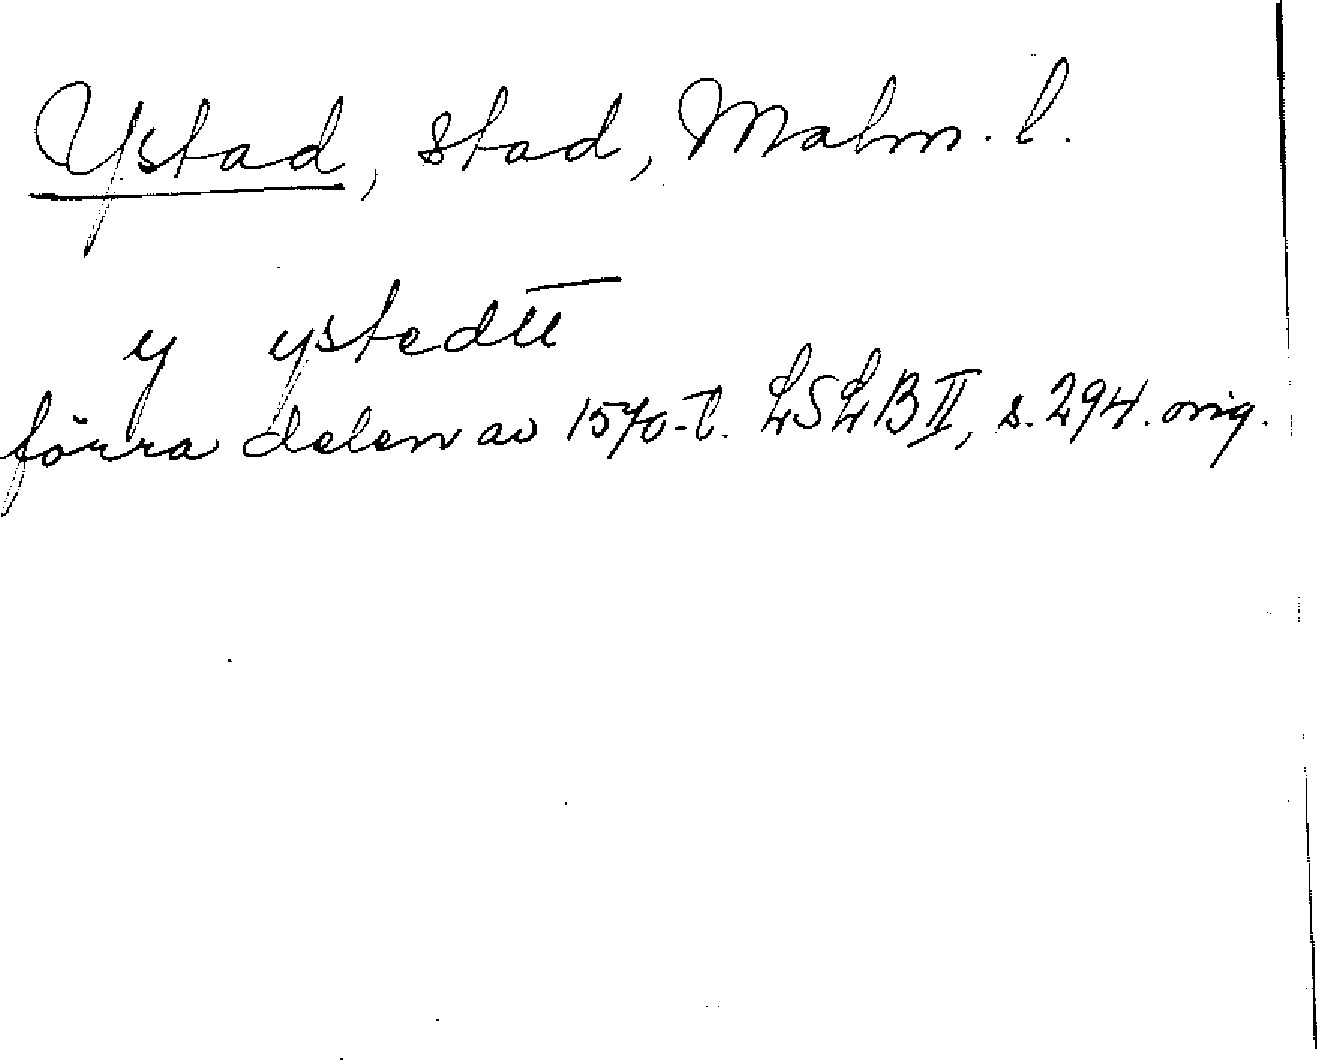 Ystad, stad, Malm. l.
y ystedū
förra delen av 1570-t. LSLB II, s. 294. orig.